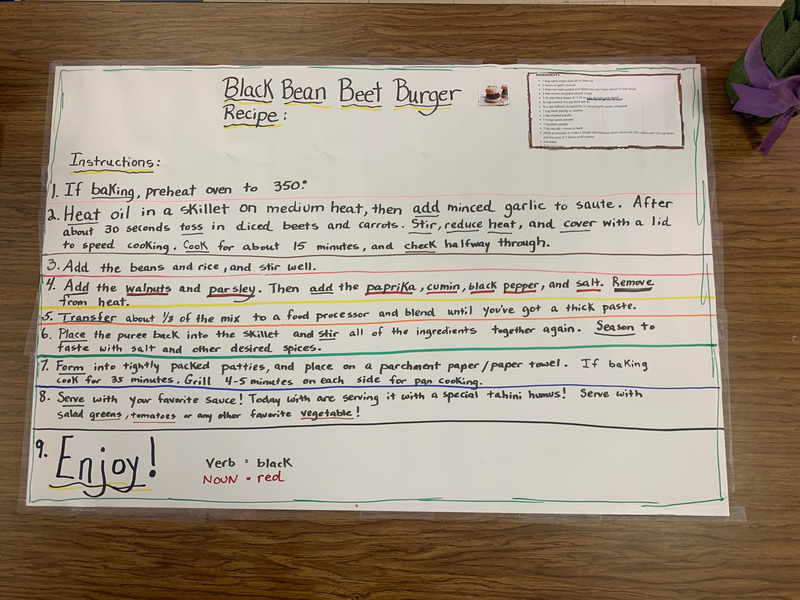 Black Bean Beet Burger
Recipe:
INGREDIENTS
Instructions:
1. If baking, preheat oven to 350°.
2. Heat oil in a skillet on medium heat, then add minced garlic to saute. After
about 30 seconds toss in diced beets and carrots. Stir, reduce heat, and cover with a lid
to speed cooking. Cook for about 15 minutes, and check halfway through.
3. Add the beans and rice, and stir well.
4. Add the walnuts and parsley. Then add the paprika, cumin, black pepper, and salt. Remove
from heat.
5. Transfer about 1/3 of the mix to a food processor and blend until you've got a thick paste.
6. Place the puree back into the skillet and stir all of the ingredients together again. Season to
taste with salt and other desired spices.
7. Form into tightly packed patties, and place on a parchment paper/paper towel. If baking
cook for 35 minutes. Grill 4-5 minutes on each side for pan cooking.
8. Serve with your favorite sauce! Today with are serving it with a special tahini humus! Serve with
salad greens, tomatoes or any other favorite vegetable!
9. Enjoy!
Verb = black
NOUN = red